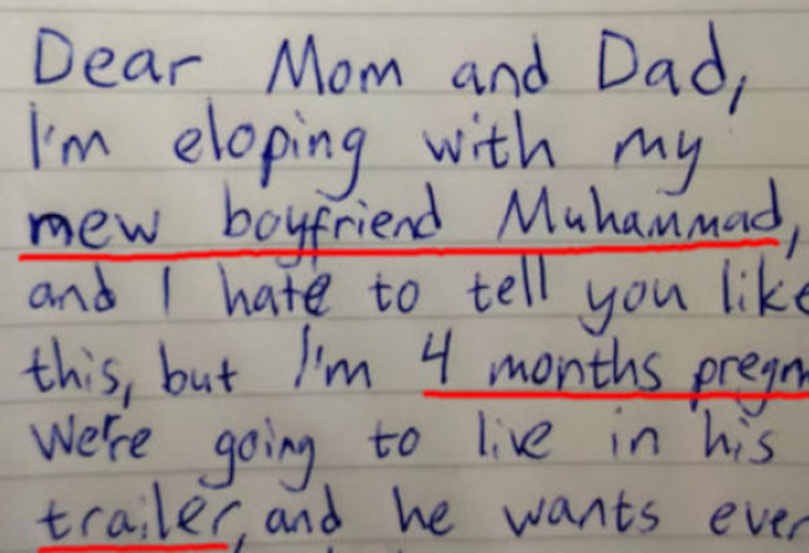 Dear Mom and Dad,
I'm eloping with my
new boyfriend Muhammad,
and I hate to tell you like
this, but I'm 4 months pregn
We're going to live in his
trailer, and he wants ever